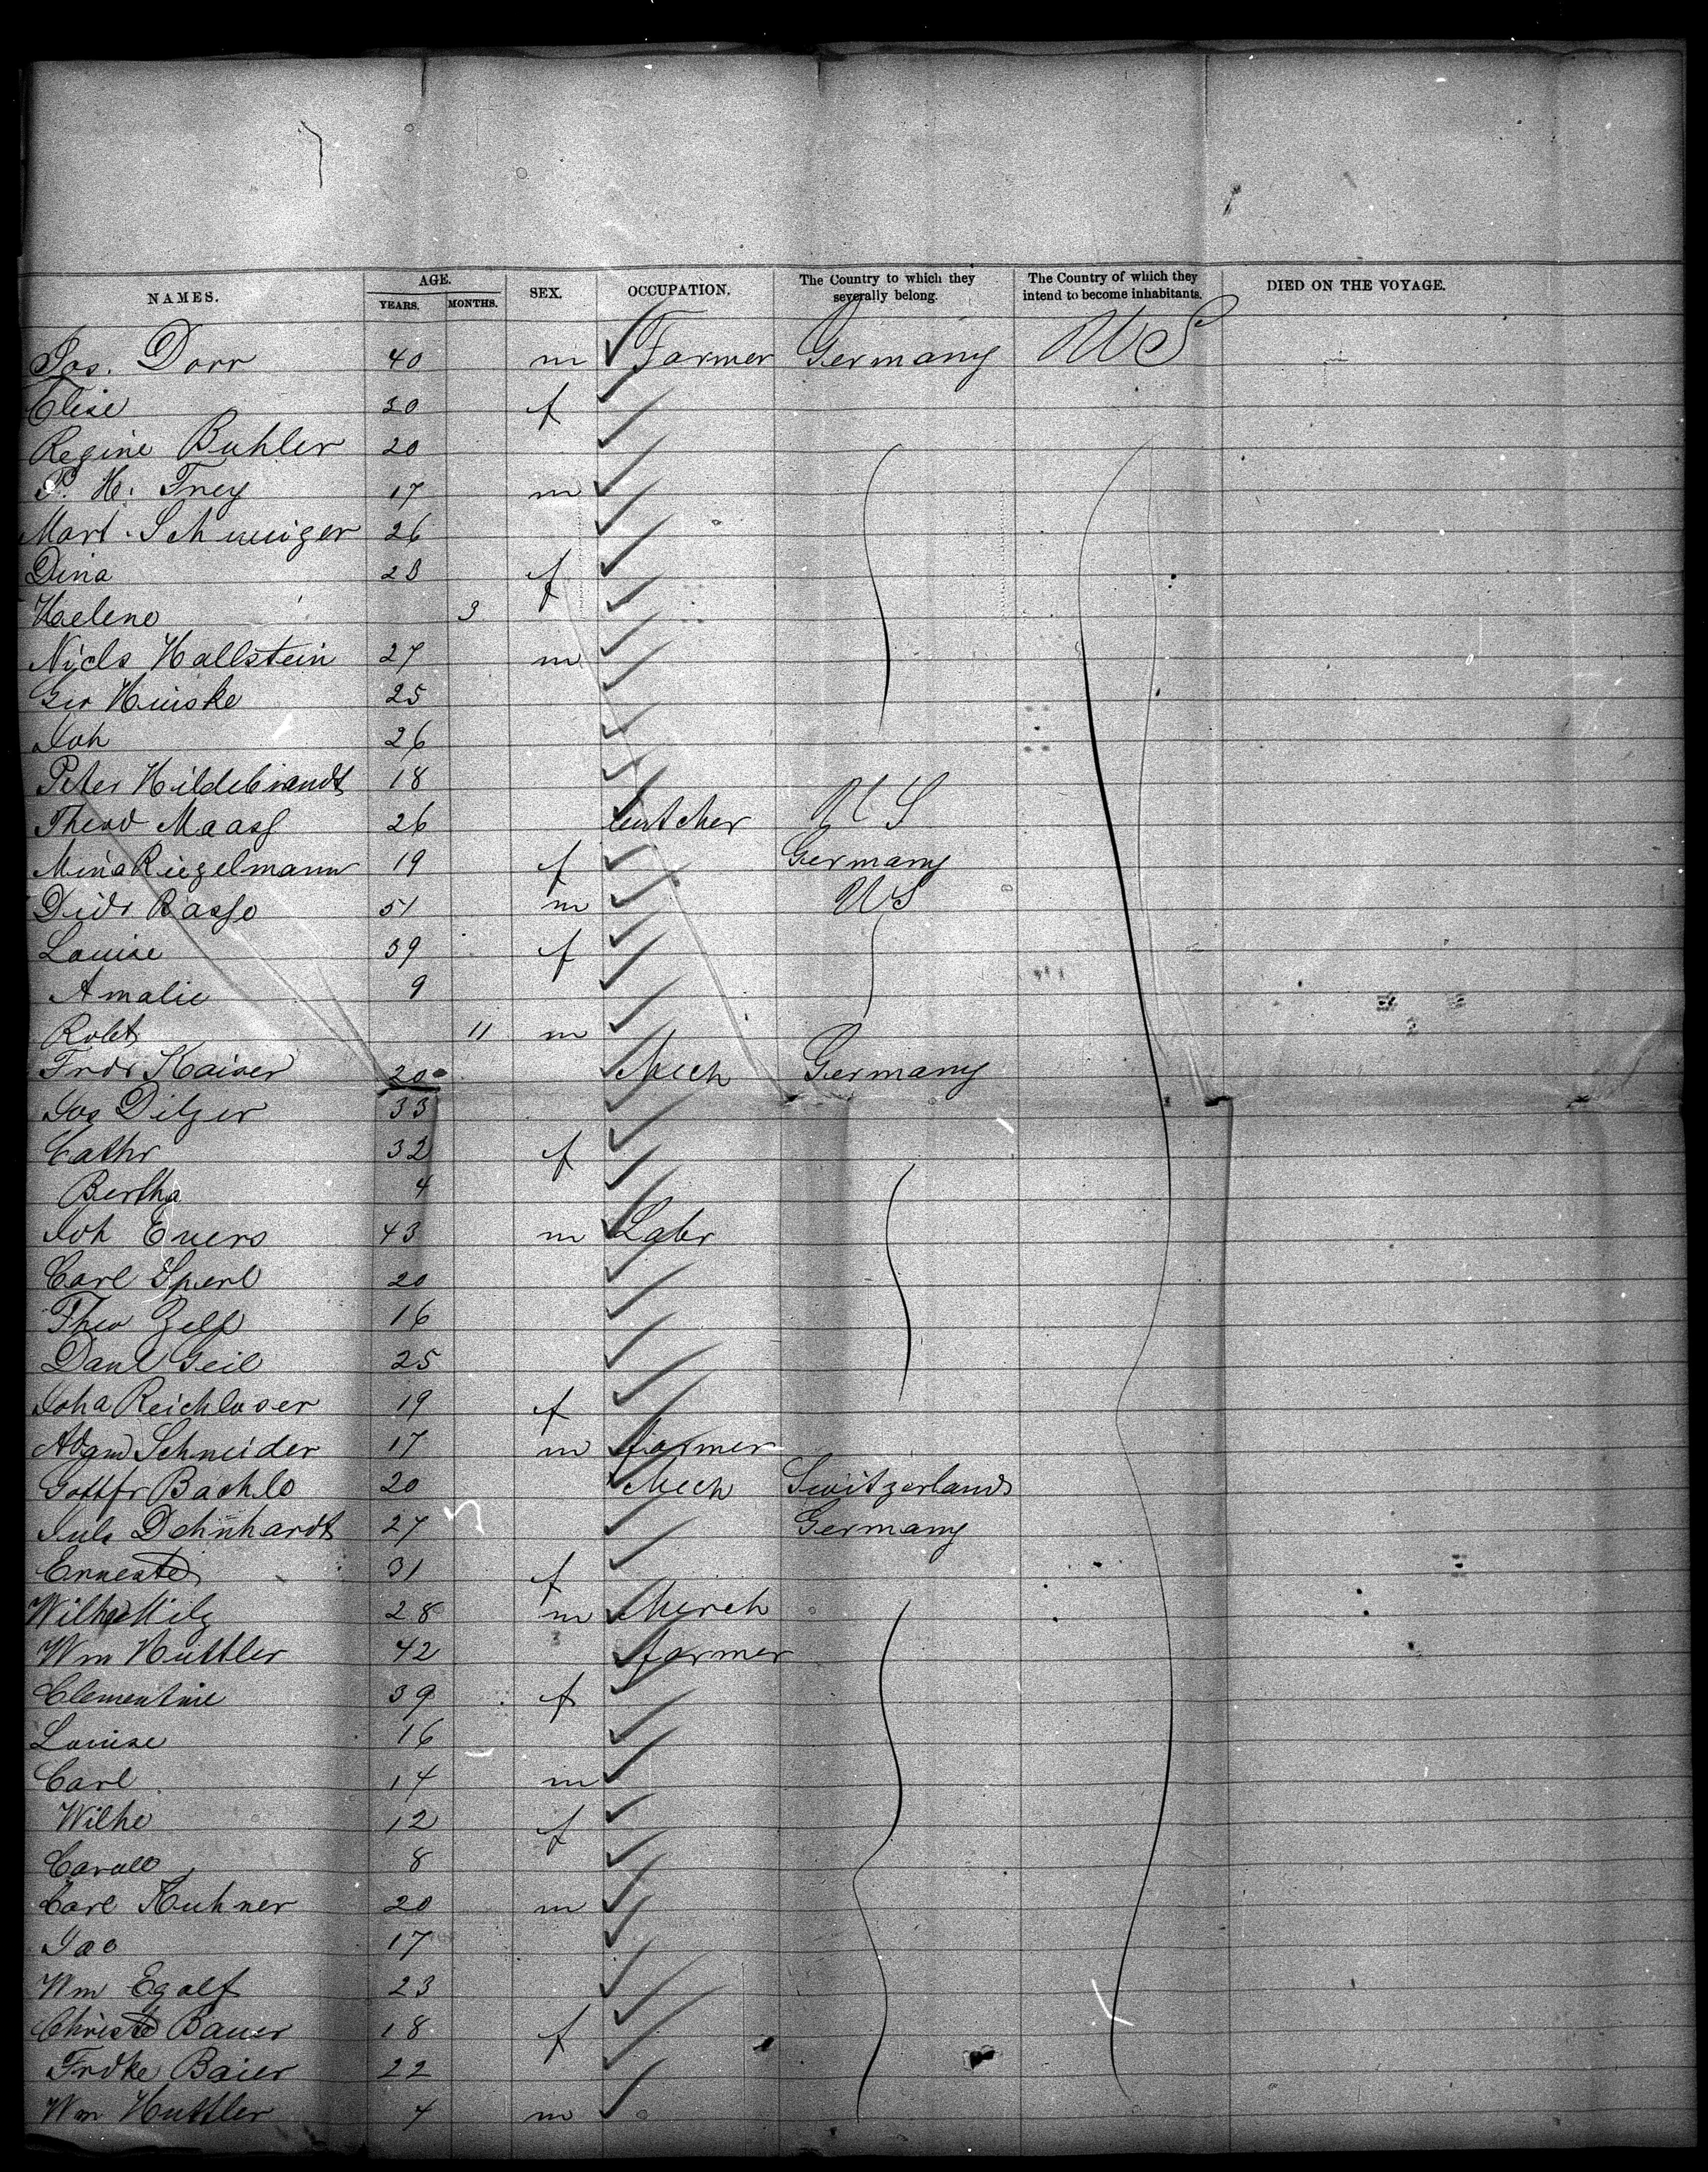 NAMES. AGE. YEARS. MONTHS. SEX. OCCUPATION. The Country to which they severally belong. The Country of which they intend to become inhabitants. DIED ON THE VOYAGE.
Jos. Dorr 40 m Farmer Germany U S
Elise 30 f
Regine Buhler 20
P. H. Frey 17 m
Mart. 26
Dina 23 f
Helene 3
Niels Hallstein 27 m
Geo Huiske 25
Joh 26
Peter Hildebrandt 18
Theod Maass 26 butcher U S
Mina Riegelmann 19 f Germany
Didr Rasse 51 m U S
Louise 39 f
Amalie 9
Robt 11 m
Frdr Kaiser 20 Mech Germany
Jos Dilger 33
Cathr 32 f
Bertha 4
Joh Evers 43 m Labr
Carl Sperl 20
Theo 16
Danl Geil 25
Joha 19 f
Adam Schneider 17 m farmer
Gottfr Bachle 20 Mech Switzerland
Juls Dehnhardt 27 Germany
Erneste 31 f
Milz 28 m Merch
Wm Huttler 42 farmer
Clementine 39 f
Louise 16
Carl 14 m
Wilhe 12 f
8
Carl Kuhner 20 m
Jac 17
Wm Egolf 23
Christe Bauer 18 f
Frdke Baier 22
Wm Huttler 4 m